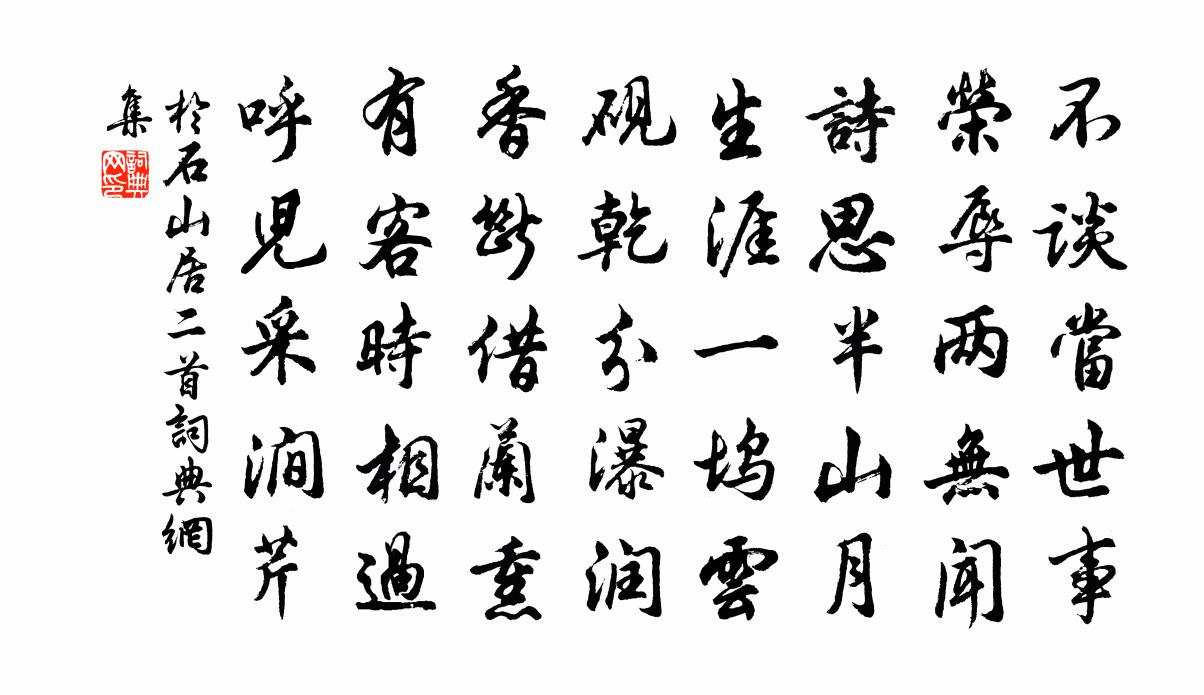 不談當世事
榮辱两無聞
詩思半山月
生涯一塢雲
硯乾分瀑润
香斷借蘭熏
有客時相過
呼児采澗芹
於石山居二首詞典網
集
詞典网印